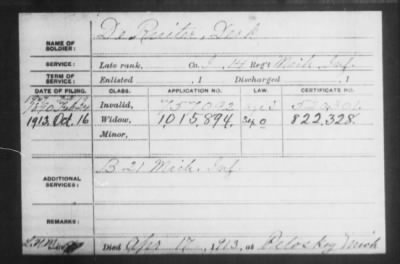 NAME OF SOLDIER: De Ruiter, Derk
SERVICE: Late rank, Co. I, 14 Reg't Mich. Inf.
TERM OF SERVICE: Enlisted , 1 Discharged , 1
DATE OF FILING. CLASS. APPLICATION NO. LAW. CERTIFICATE NO.
Invalid,
1913. Oct. 16 Widow, 1,015,894. 822,328.
Minor,
ADDITIONAL SERVICES: B 21 Mich. Inf.
REMARKS:
Died Apr 17, 1913, at Petoskey Mich